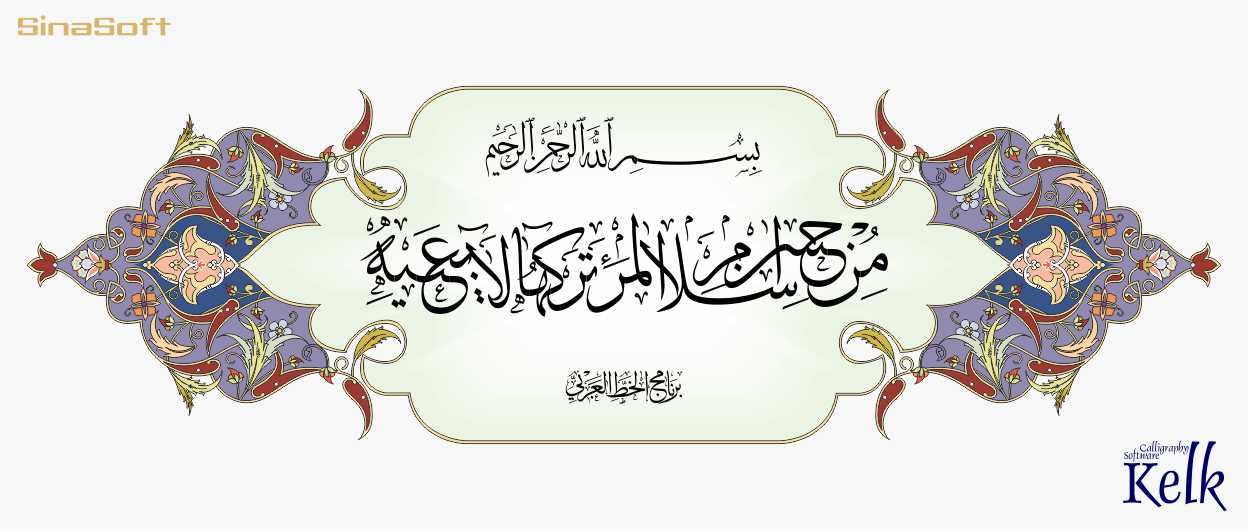 SinaSoft
بِسْمِ اللّٰهِ الرَّحْمٰنِ الرَّحِيْمِ
مِنْ حسن اسلام المرء تركه ما لا يعنيه
برنامج الخط العربي
Calligraphy
Software
Kelk